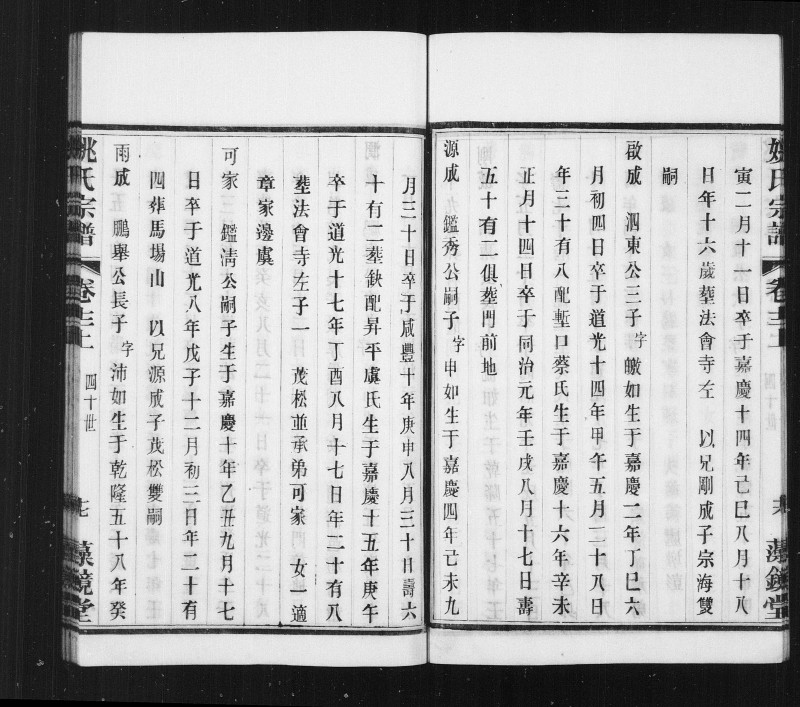 姚氏宗譜
卷三十二
藻鏡堂
寅二月十一日卒于嘉慶十四年己巳八月十八
日年十六歲塟法會寺左 以兄剛成子宗海雙
嗣
啟成 泗東公三子字皦如生于嘉慶二年丁巳六
月初四日卒于道光十四年甲午五月二十八日
年三十有八配塹口蔡氏生于嘉慶十六年辛未
正月十四日卒于同治元年壬戌八月十七日壽
五十有二俱塟門前地
源成 鑑秀公嗣子字申如生于嘉慶四年己未九
月三十日卒于咸豐十年庚申八月三十日壽六
十有二塟缺配昇平虞氏生于嘉慶十五年庚午
卒于道光十七年丁酉八月十七日年二十有八
塟法會寺左子一 茂松並承弟可家 女一適
章家邊虞
可家 鑑清公嗣子生于嘉慶十年乙丑九月十七
日卒于道光八年戊子十二月初三日年二十有
四葬馬場山 以兄源成子茂松雙嗣
雨成 鵬舉公長子字沛如生于乾隆五十八年癸
姚氏宗譜
四十世
藻鏡堂